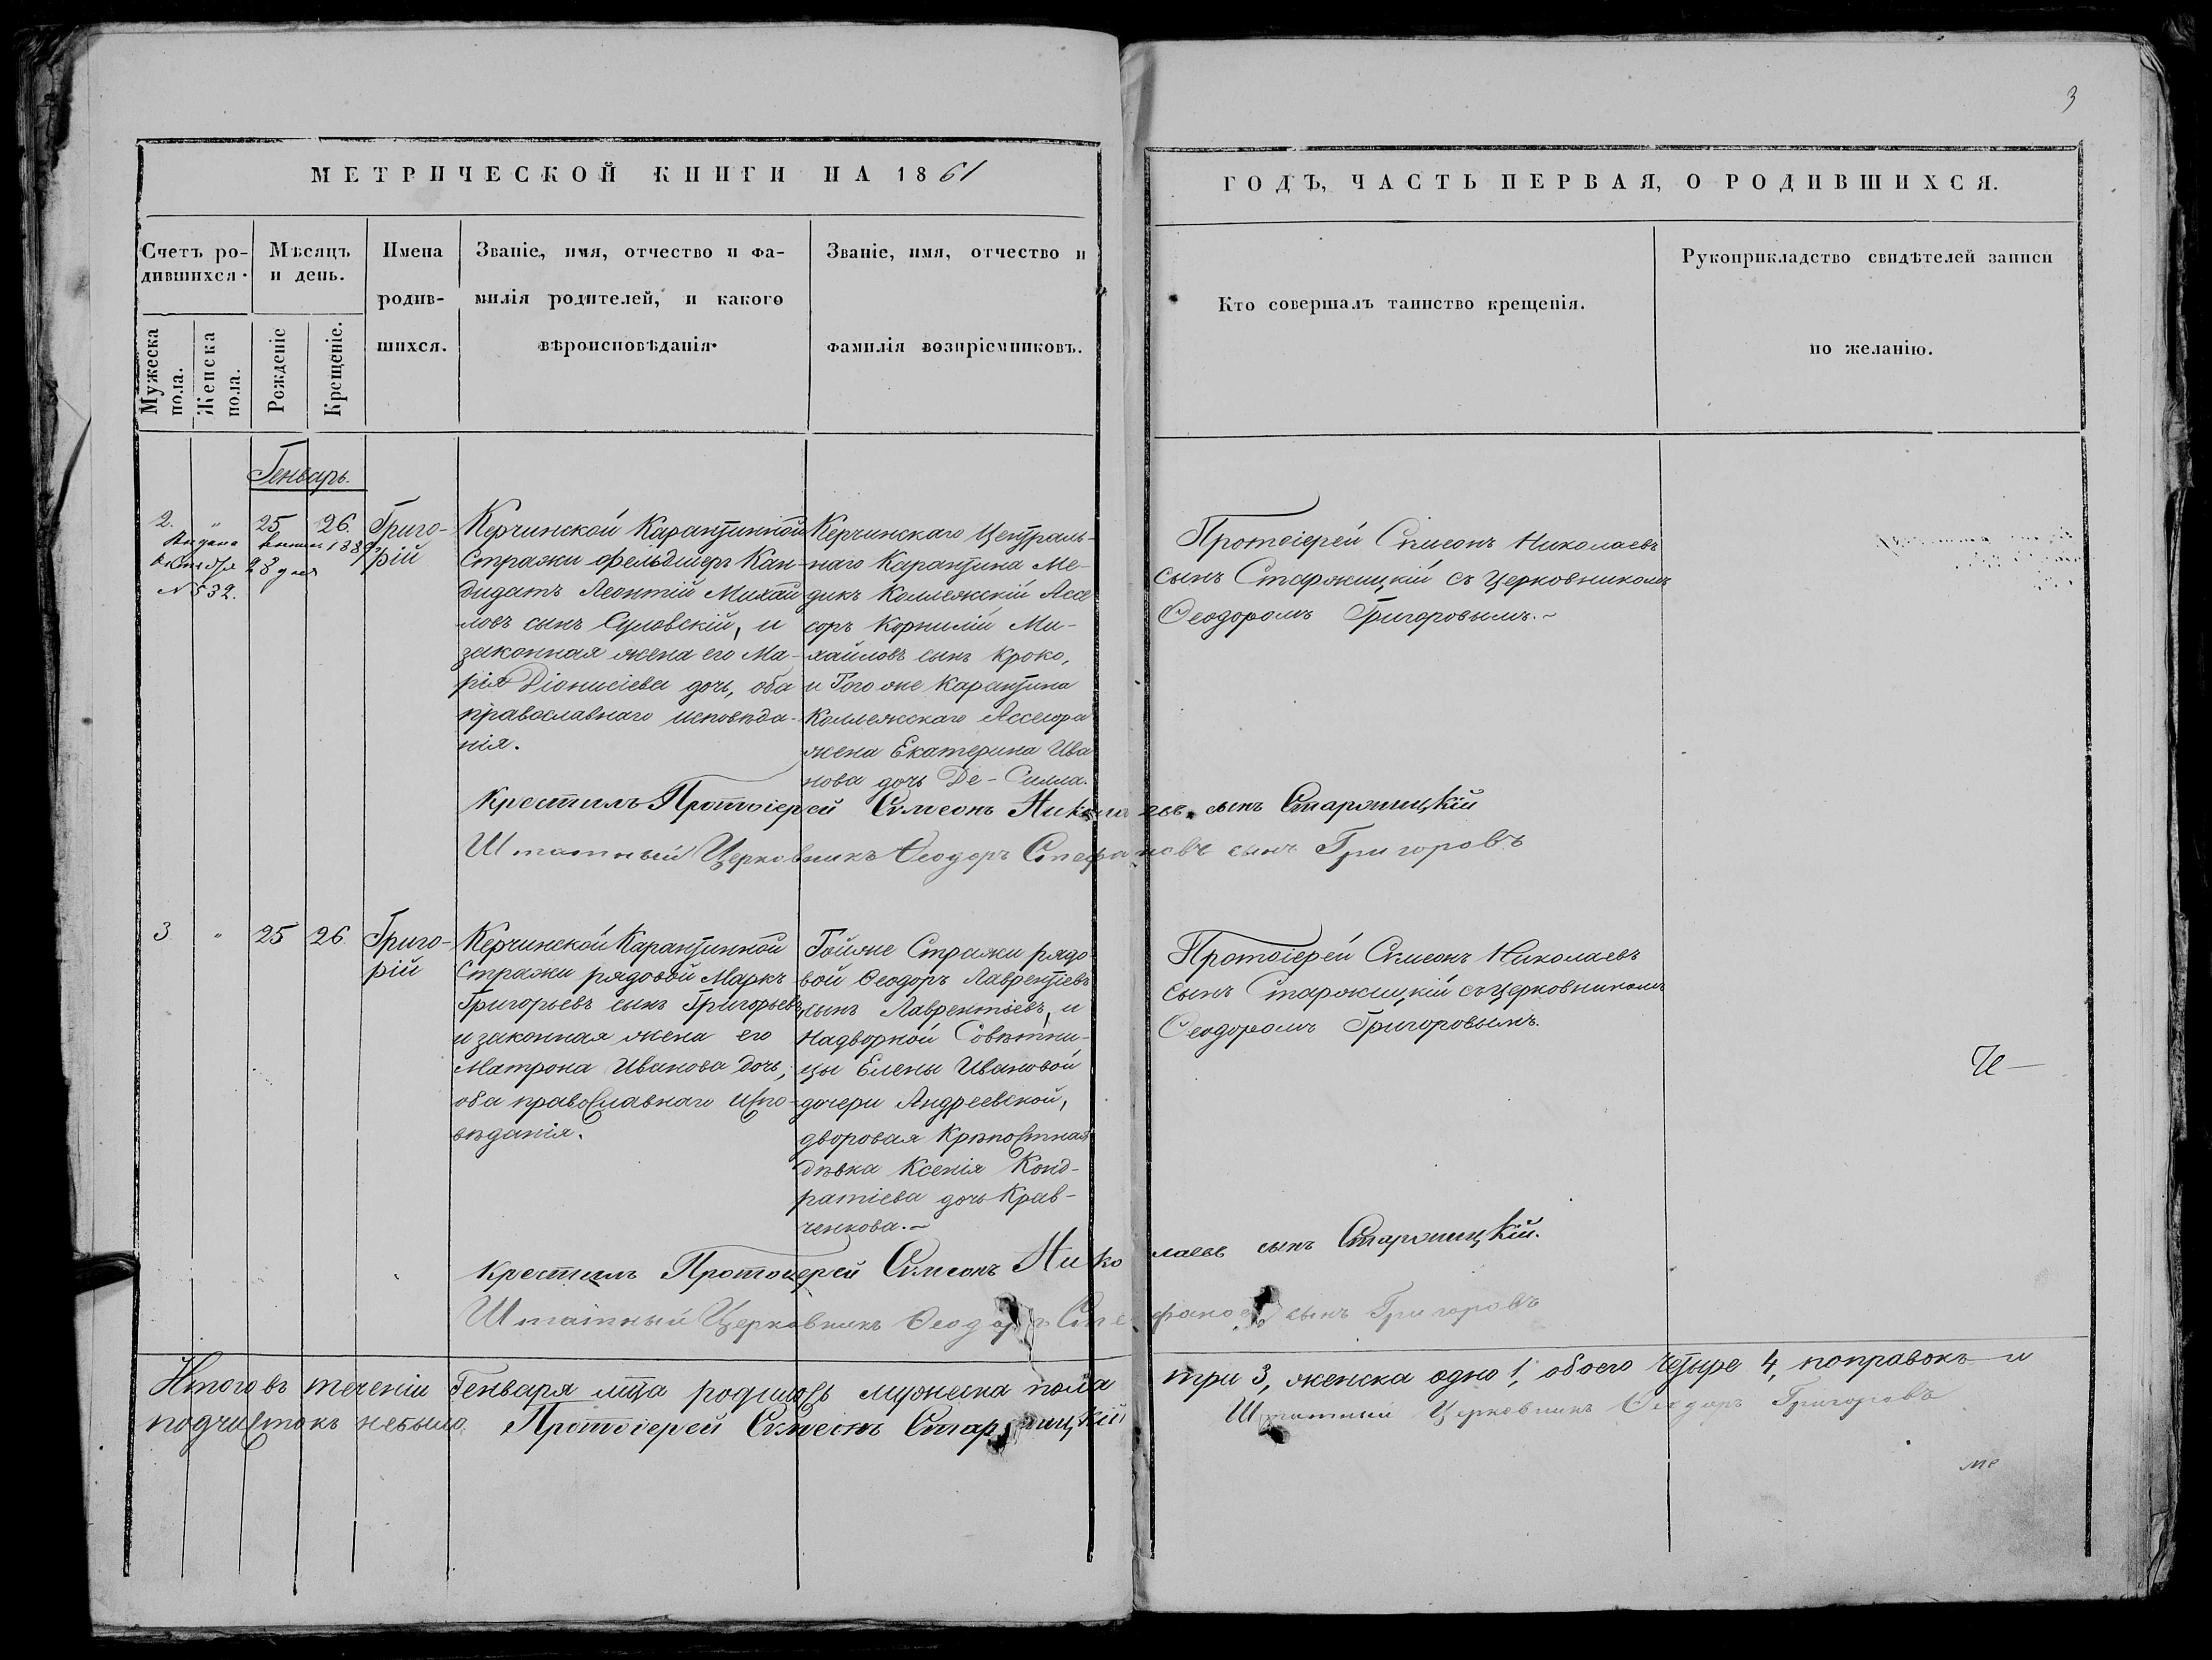 3
МЕТРИЧЕСКОЙ КНИГИ НА 1861
ГОДЪ, ЧАСТЬ ПЕРВАЯ, О РОДИВШИХСЯ.
Счетъ ро-
дившихся.
Мужеска
пола.
Женска
пола.
Мѣсяцъ
и день.
Рожденіе
Крещеніе.
Имена
родив-
шихся.
Званіе, имя, отчество и фа-
милія родителей, и какого
вѣроисповѣданія.
Званіе, имя, отчество и
фамилія воспріемниковъ.
Кто совершалъ таинство крещенія.
Рукоприкладство свидѣтелей записи
по желанію.
Генварь.
2. " 25 26
Выдана 188
октября 28 дня
№ 532.
Григо-
рій
Керчинской Карантинной
Стражи фельдшеръ Кан-
дидатъ Леонтій Михай
ловъ сынъ Суловскій, и
законная жена его Ма-
рія Діонисіева дочь, оба
православнаго исповѣда-
нія.
Керчинскаго Централь-
наго Карантина Ме-
дикъ Коллежскій Ассе
соръ Корнилій Ми-
хайловъ сынъ Кроко,
и того же Карантина
Коллежскаго Ассесора
жена Екатерина Ива
нова дочь Де-Силла.
Протоіерей Симеонъ Николаевъ
сынъ Старжицкій съ церковникомъ
Ѳеодоромъ Григоровымъ.
Крестилъ Протоіерей Симеонъ Николаевъ сынъ Старжицкій
Штатный Церковникъ Ѳеодоръ Стефановъ сынъ Григоровъ
3 " 25 26
Григо-
рій
Керчинской Карантинной
Стражи рядовой Маркъ
Григорьевъ сынъ Григорьевъ,
и законная жена его
Матрона Иванова дочь,
оба православнаго испо-
вѣданія.
Тойже Стражи рядо
вой Ѳеодоръ Лаврентіевъ
сынъ Лаврентьевъ, и
Надворной Совѣтни-
цы Елены Ивановой
дочери Андреевской,
дворовая крѣпостная
дѣвка Ксенія Конд-
ратіева дочь Крав-
ченкова.
Протоіерей Симеонъ Николаевъ
сынъ Старжицкій съ церковникомъ
Ѳеодоромъ Григоровымъ.
Крестилъ Протоіерей Симеонъ Николаевъ сынъ Старжицкій.
Штатный Церковникъ Ѳеодоръ Стефановъ сынъ Григоровъ
Итого въ теченіи Генваря мца родилось мужеска пола три 3, женска одно 1, обоего четыре 4, поправокъ и
подчистокъ небыло. Протоіерей Симеонъ Старжицкій Штатный Церковникъ Ѳеодоръ Григоровъ